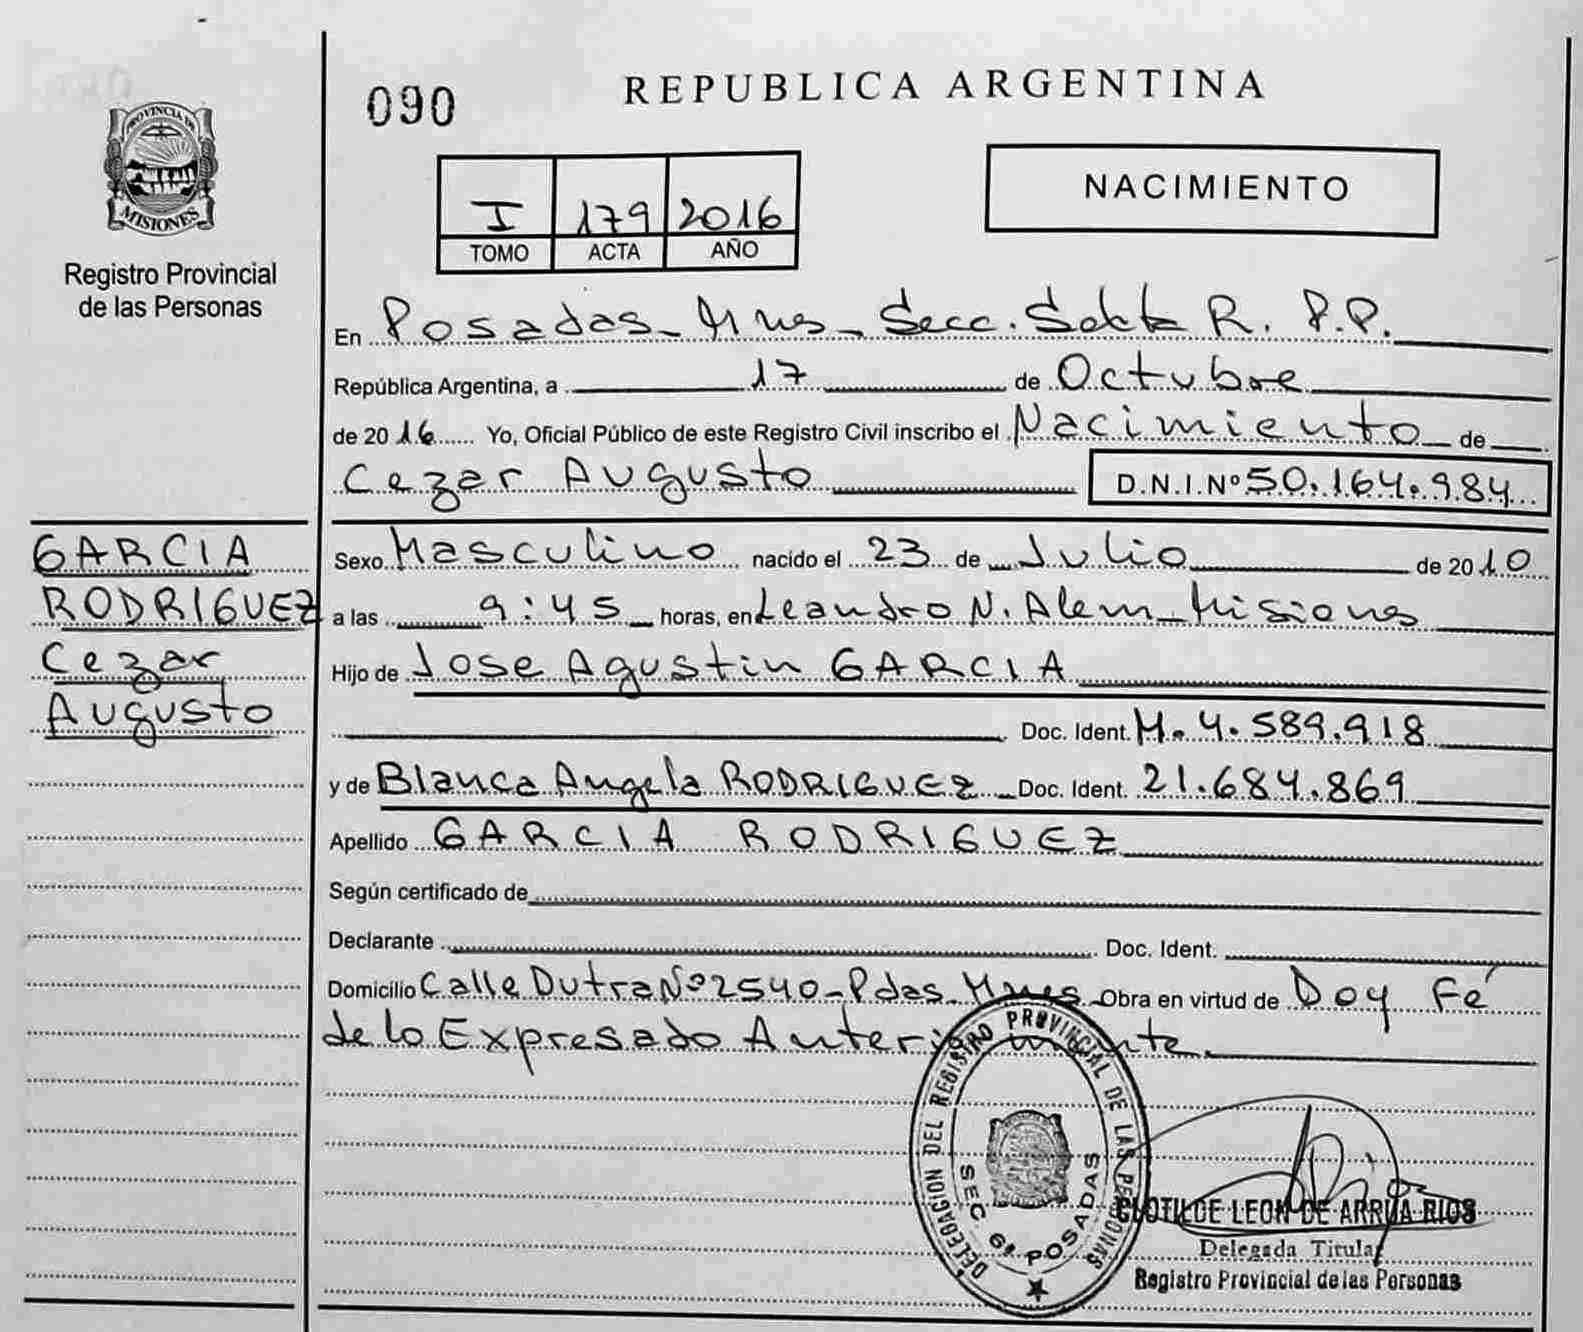 090
REPUBLICA ARGENTINA
PROVINCIA DE
MISIONES
Registro Provincial
de las Personas
I 179 2016
TOMO ACTA AÑO
NACIMIENTO
En Posadas - Mnes - Secc. Sexta R. P.P.
República Argentina, a 17 de Octubre
de 2016 Yo, Oficial Público de este Registro Civil inscribo el Nacimiento de
Cezar Augusto D.N.I.Nº 50.164.984
GARCIA
RODRIGUEZ
Cezar
Augusto
Sexo Masculino nacido el 23 de Julio de 2010
a las 9:45 horas, en Leandro N. Alem - Misiones
Hijo de Jose Agustin GARCIA
Doc. Ident. M. 4.589.918
y de Blanca Angela RODRIGUEZ Doc. Ident. 21.684.869
Apellido GARCIA RODRIGUEZ
Según certificado de
Declarante Doc. Ident.
Domicilio Calle Dutra Nº 2540 - Pdas. Mnes Obra en virtud de Doy Fé
de lo Expresado Anteriormente.
DELEGACION DEL REGISTRO PROVINCIAL DE LAS PERSONAS
SEC. 6ª POSADAS
CLOTILDE LEON DE ARRUA RIOS
Delegada Titular
Registro Provincial de las Personas